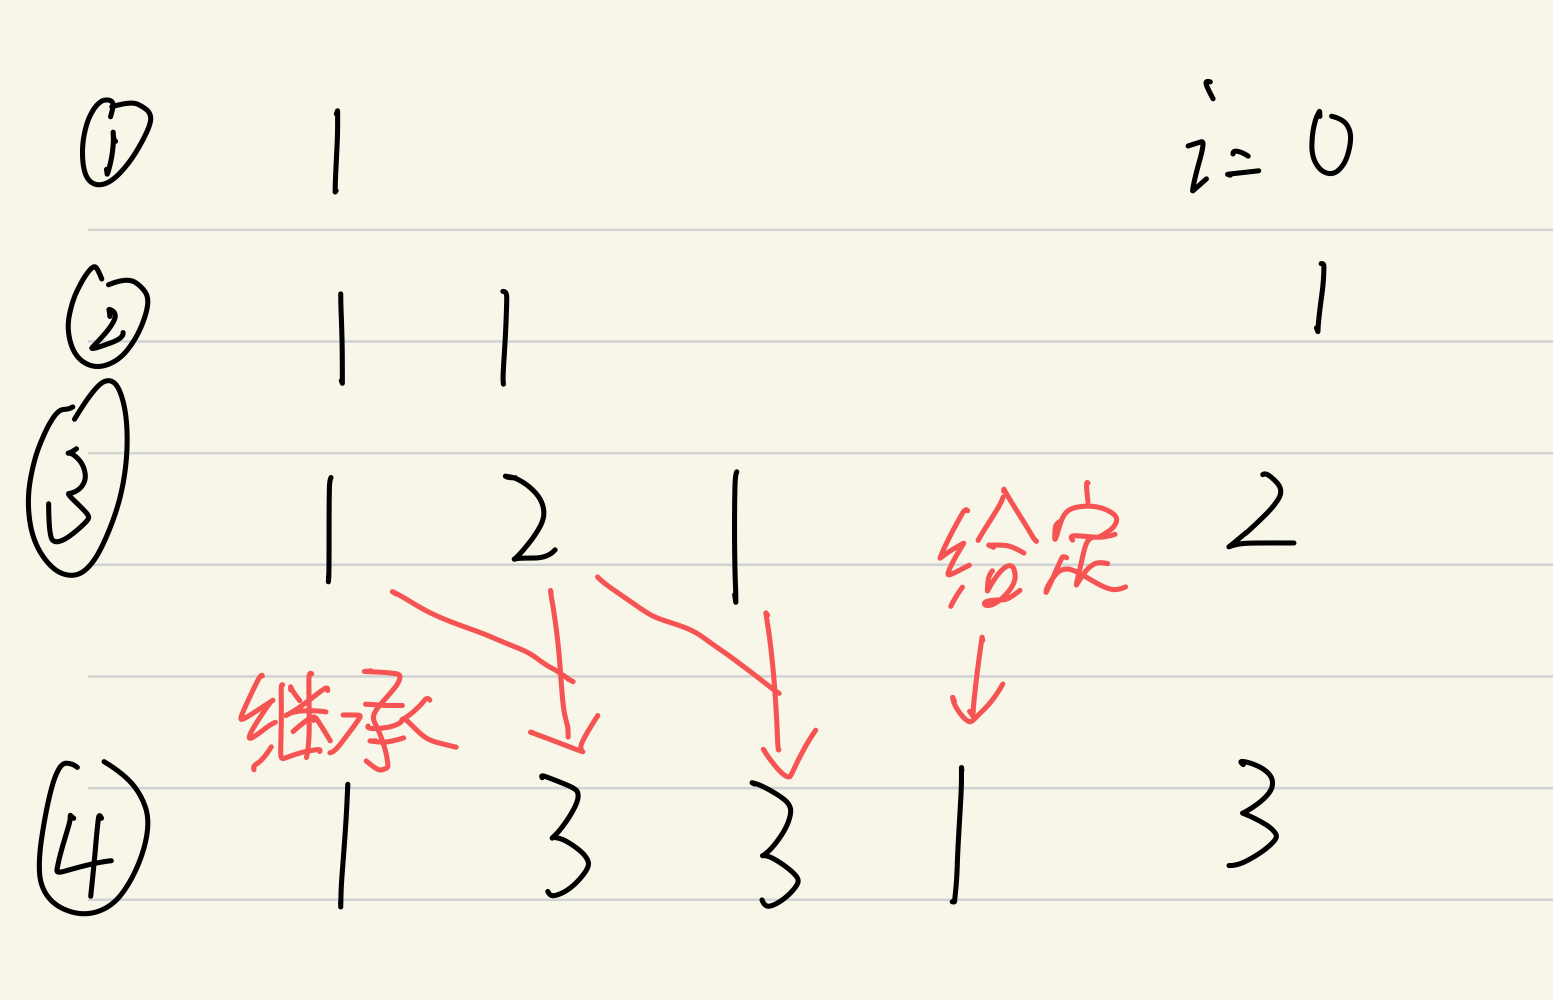 ① 1 i=0
② 1 1 1
③ 1 2 1 给定 2
继承
④ 1 3 3 1 3